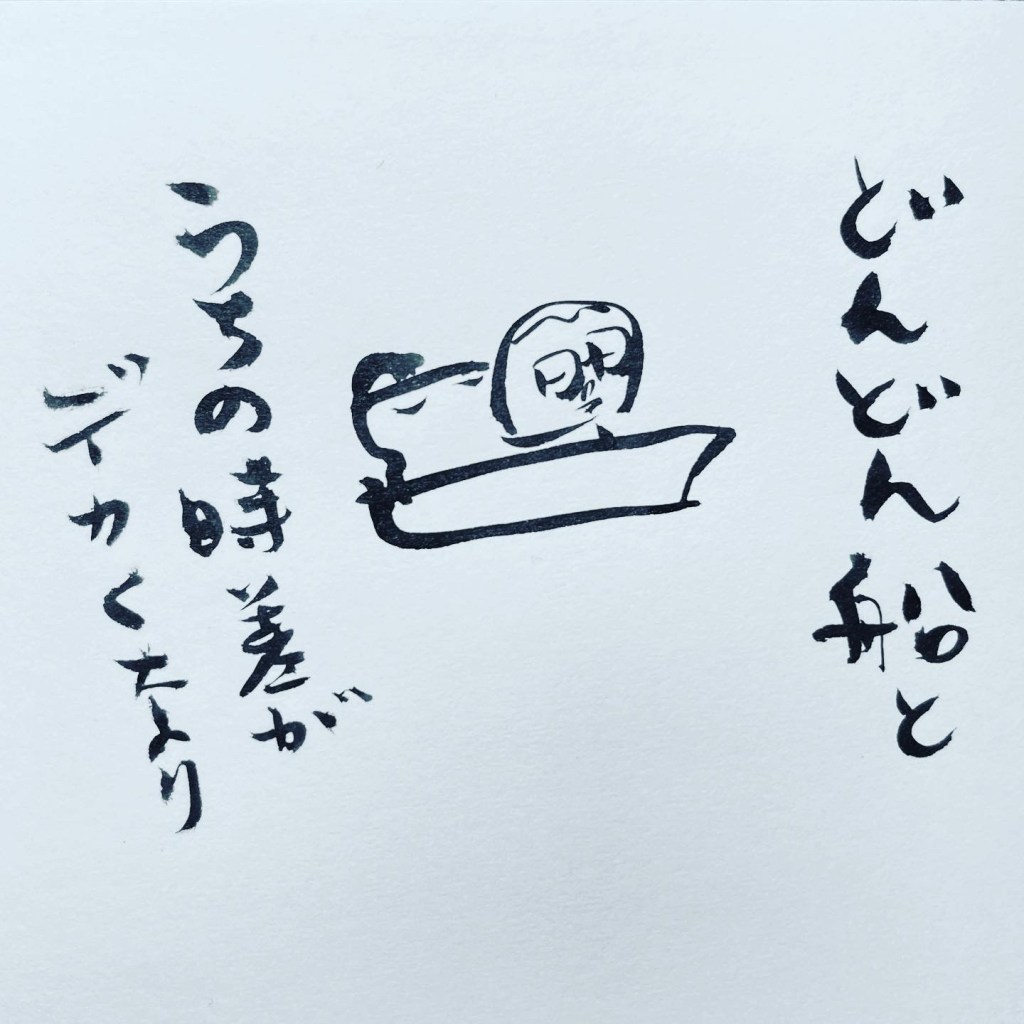 どんどん船と
うちの時差が
デイカくなり